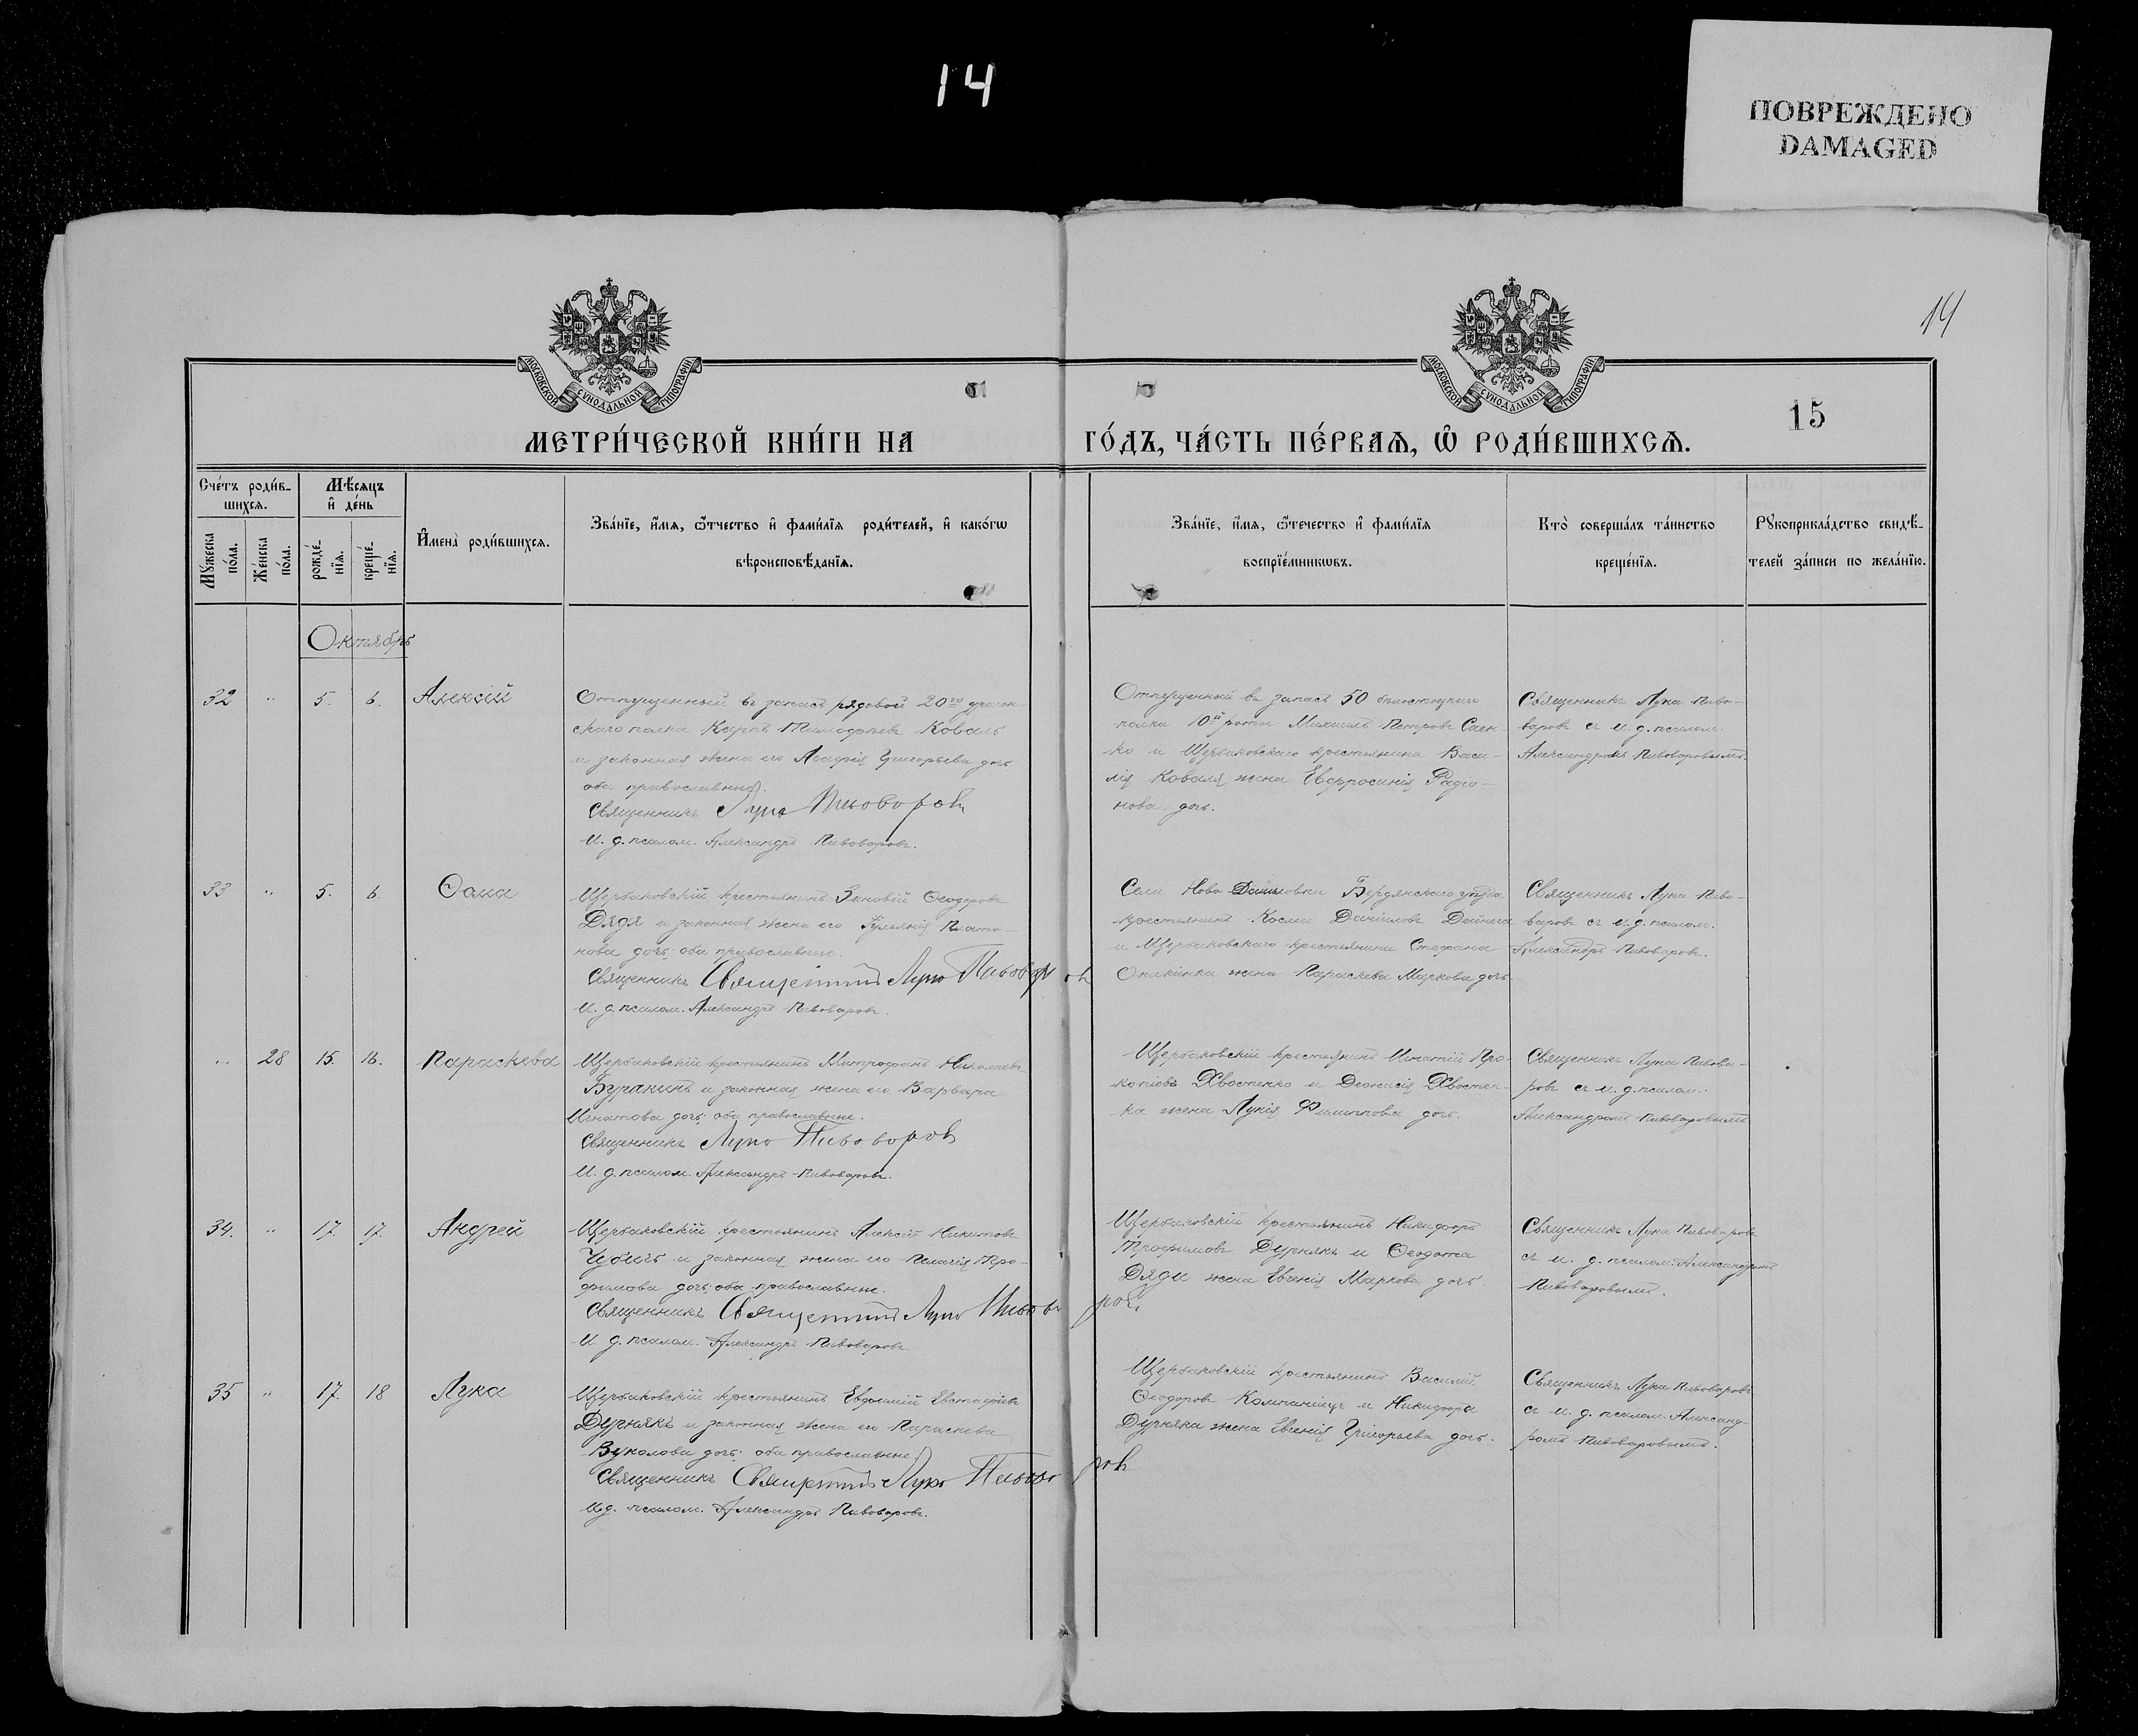 14
ПОВРЕЖДЕНО
DAMAGED
14
15
МОСКОВСКОЙ СѴНОДАЛЬНОЙ ТИПОГРАФІИ
МОСКОВСКОЙ СѴНОДАЛЬНОЙ ТИПОГРАФІИ
МЕТРИ́ЧЕСКОЙ КНИ́ГИ НА ГО́ДЪ, ЧА́СТЬ ПЕ́РВАѦ, Ѡ҆ РОДИ́ВШИХСѦ.
Сче́тъ роди́в-
шихсѧ.
Мѣ́сѧцъ
и҆ де́нь
Мꙋжеска по́ла.
Же́нска по́ла.
рожде́-нїѧ.
креще́-нїѧ.
И҆мена̀ роди́вшихсѧ.
Зва́нїе, и҆́мѧ, ѻ҆́тчество и҆ фами́лїѧ роди́телей, и҆ како́гѡ
вѣроисповѣ́данїѧ.
Зва́нїе, и҆́мѧ, ѻ҆́течество и҆ фами́лїѧ
воспрїе́мникѡвъ.
Кто̀ соверша́лъ та́инство
креще́нїѧ.
Рꙋкоприкла́дство свидѣ́-
телей за́писи по жела́нїю.
Октябрь
32 " 5. 6. Алексій
Отпущенный въ запасъ рядовой 20го драгун-
скаго полка Карпъ Тимофеевъ Коваль
и законная жена его Агафія Григорьева дочь
оба православные.
Священникъ Лука Пивоваровъ
И. д. псалом. Александръ Пивоваровъ.
Отпущенный въ запасъ 50
полка 10й роты Михаилъ Петровъ Саен-
ко и Щербаковскаго крестьянина Васи-
лія Коваля жена Евфросинія Радіо-
нова дочь.
Священникъ Лука Пиво-
варовъ съ и. д. псалом.
Александромъ Пивоваровымъ.
33 " 5. 6. Ѳома
Щербаковскій крестьянинъ Зиновій Ѳеодоровъ
Дядя и законная жена его Іуліанія Плато-
нова дочь, оба православные.
Священникъ Священникъ Лука Пивоваровъ
И. д. псалом. Александръ Пивоваровъ.
Села Ново Даниловки Бердянскаго уѣзда
крестьянинъ Косма Даниловъ
и Щербаковскаго крестьянина Стефана
жена Параскева Маркова дочь
Священникъ Лука Пиво-
варовъ съ и. д. псалом.
Александръ Пивоваровъ.
" 28 15. 16. Параскева
Щербаковскій крестьянинъ Митрофанъ Николаевъ
Бурлкинъ и законная жена его Варвара
Игнатова дочь, оба православные.
Священникъ Лука Пивоваровъ
И. д. псалом. Александръ Пивоваровъ.
Щербаковскій крестьянинъ Игнатій Про-
копіевъ Хвостенко и Діонисія Хвостен-
ка жена Лукія Филиппова дочь.
Священникъ Лука Пивова-
ровъ съ и. д. псалом.
Александромъ Пивоваровымъ
34. " 17. 17. Андрей
Щербаковскій крестьянинъ Алексій Никитовъ
Чубичъ и законная жена его Пелагія Тро-
фимова дочь, оба православные.
Священникъ Священникъ Лука Пивоваровъ
И. д. псалом. Александръ Пивоваровъ.
Щербаковскій крестьянинъ Никифоръ
Трофимовъ Дурнякъ и Ѳеодота
Дяди жена Евгенія Маркова дочь
Священникъ Лука Пивоваровъ
съ и. д. псалом. Александромъ
Пивоваровымъ.
35 " 17. 18 Лука
Щербаковскій крестьянинъ Евдокимъ Евстафіевъ
Дурнякъ и законная жена его Параскева
Вуколова дочь, оба православные
Священникъ Священникъ Лука Пивоваровъ
И. д. псалом. Александръ Пивоваровъ.
Щербаковскій крестьянинъ Василій
Ѳеодоровъ Компаніецъ и Никифора
Дурняка жена Евгенія Григорьева дочь.
Священникъ Лука Пивоваровъ
съ и. д. псалом. Александ-
ромъ Пивоваровымъ.